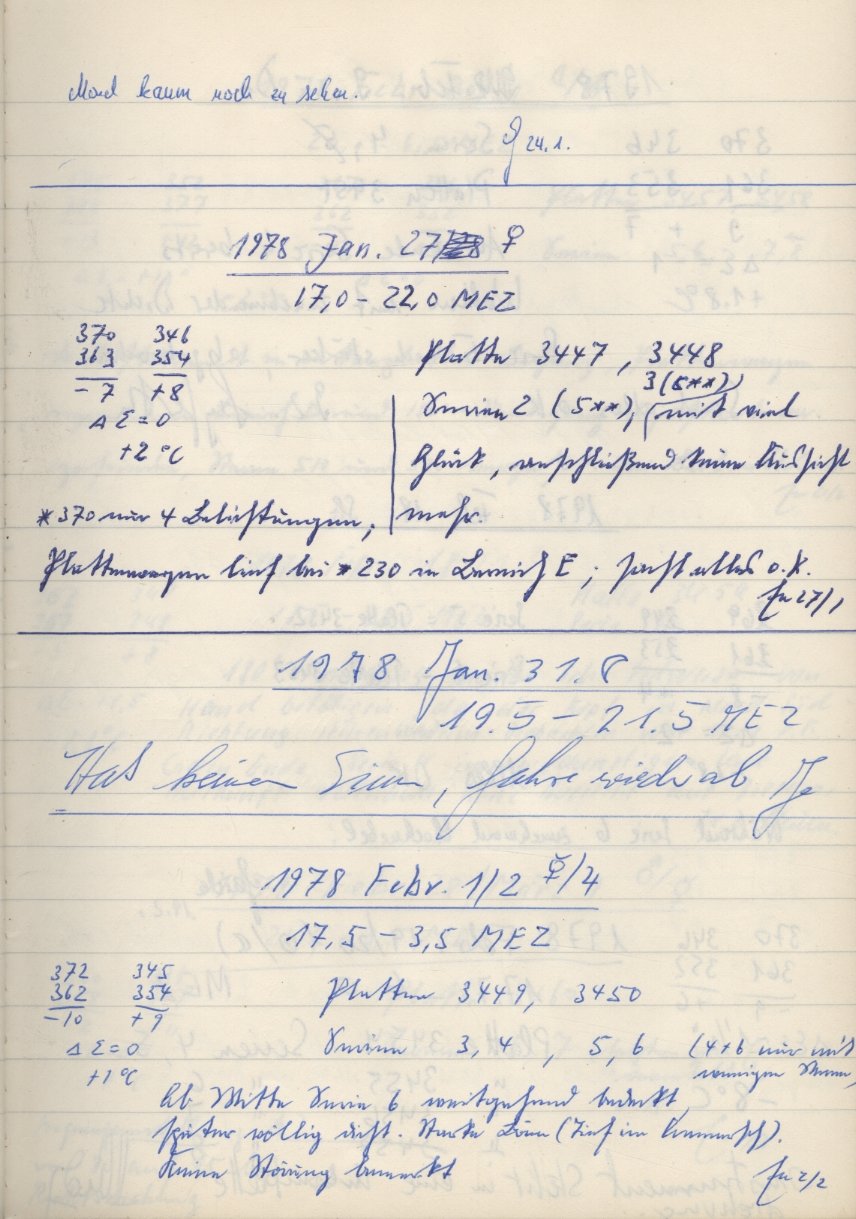 Mond kaum noch zu sehen.
24.1.
1978 Jan. 27/ ♀
17,0 – 22,0 MEZ
370 346
363 354
-7 +8
ΔΣ=0
+2 °C
Platte 3447, 3448
3(5**)
Serien 2 (5**), (mit viel
Glück, anschließend keine Aussicht
mehr.
*370 nur 4 Belichtungen,
Plattenwagen lief bei *230 in Bereich E; jetzt alles o.k.
27/1
1978 Jan. 31.
19.5 – 21.5 MEZ
Hat keinen Sinn, fahre wieder ab
1978 Febr. 1/2 ☿/4
17,5 – 3,5 MEZ
372 345
362 354
-10 +9
ΔΣ=0
+1 °C
Platten 3449, 3450
Serien 3, 4, 5, 6 (4+6 nur mit
wenigen Sternen)
Ab Mitte Serie 6 weitgehend bedeckt,
später völlig dicht. Starke Böen (Tief im Anmarsch).
Keine Störung bemerkt
2/2